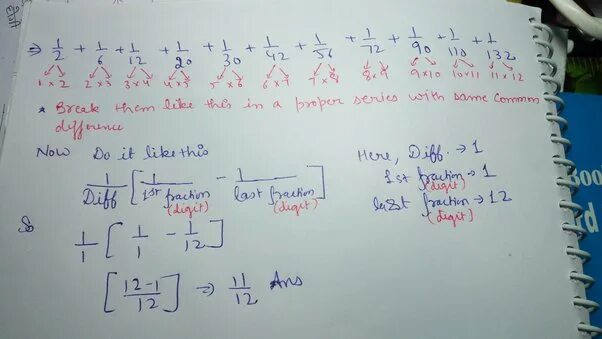 ⇒ 1/2 + 1/6 + 1/12 + 1/20 + 1/30 + 1/42 + 1/56 + 1/72 + 1/90 + 1/110 + 1/132
1×2 2×3 3×4 4×5 5×6 6×7 7×8 8×9 9×10 10×11 11×12
* Break them like this in a proper series with same common
difference
Now Do it like this
1/Diff [1/1st fraction (digit) - 1/last fraction (digit)]
Here, Diff. → 1
1st fraction → 1
(digit)
last fraction → 12
(digit)
So
1/1 [1/1 - 1/12]
[12-1/12] ⇒ 11/12 Ans
300
rd